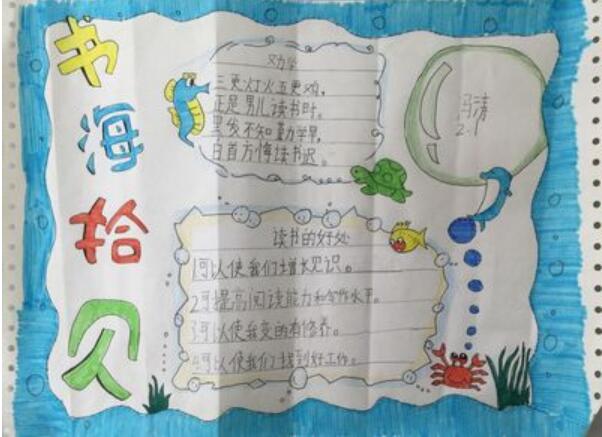 书海拾贝
劝学
三更灯火五更鸡，
正是男儿读书时。
黑发不知勤学早，
白首方悔读书迟。
冯涛
2.1
读书的好处
1可以使我们增长见识。
2可提高阅读能力和写作水平。
3可以使我变的有修养。
4可以使我们找到好工作。